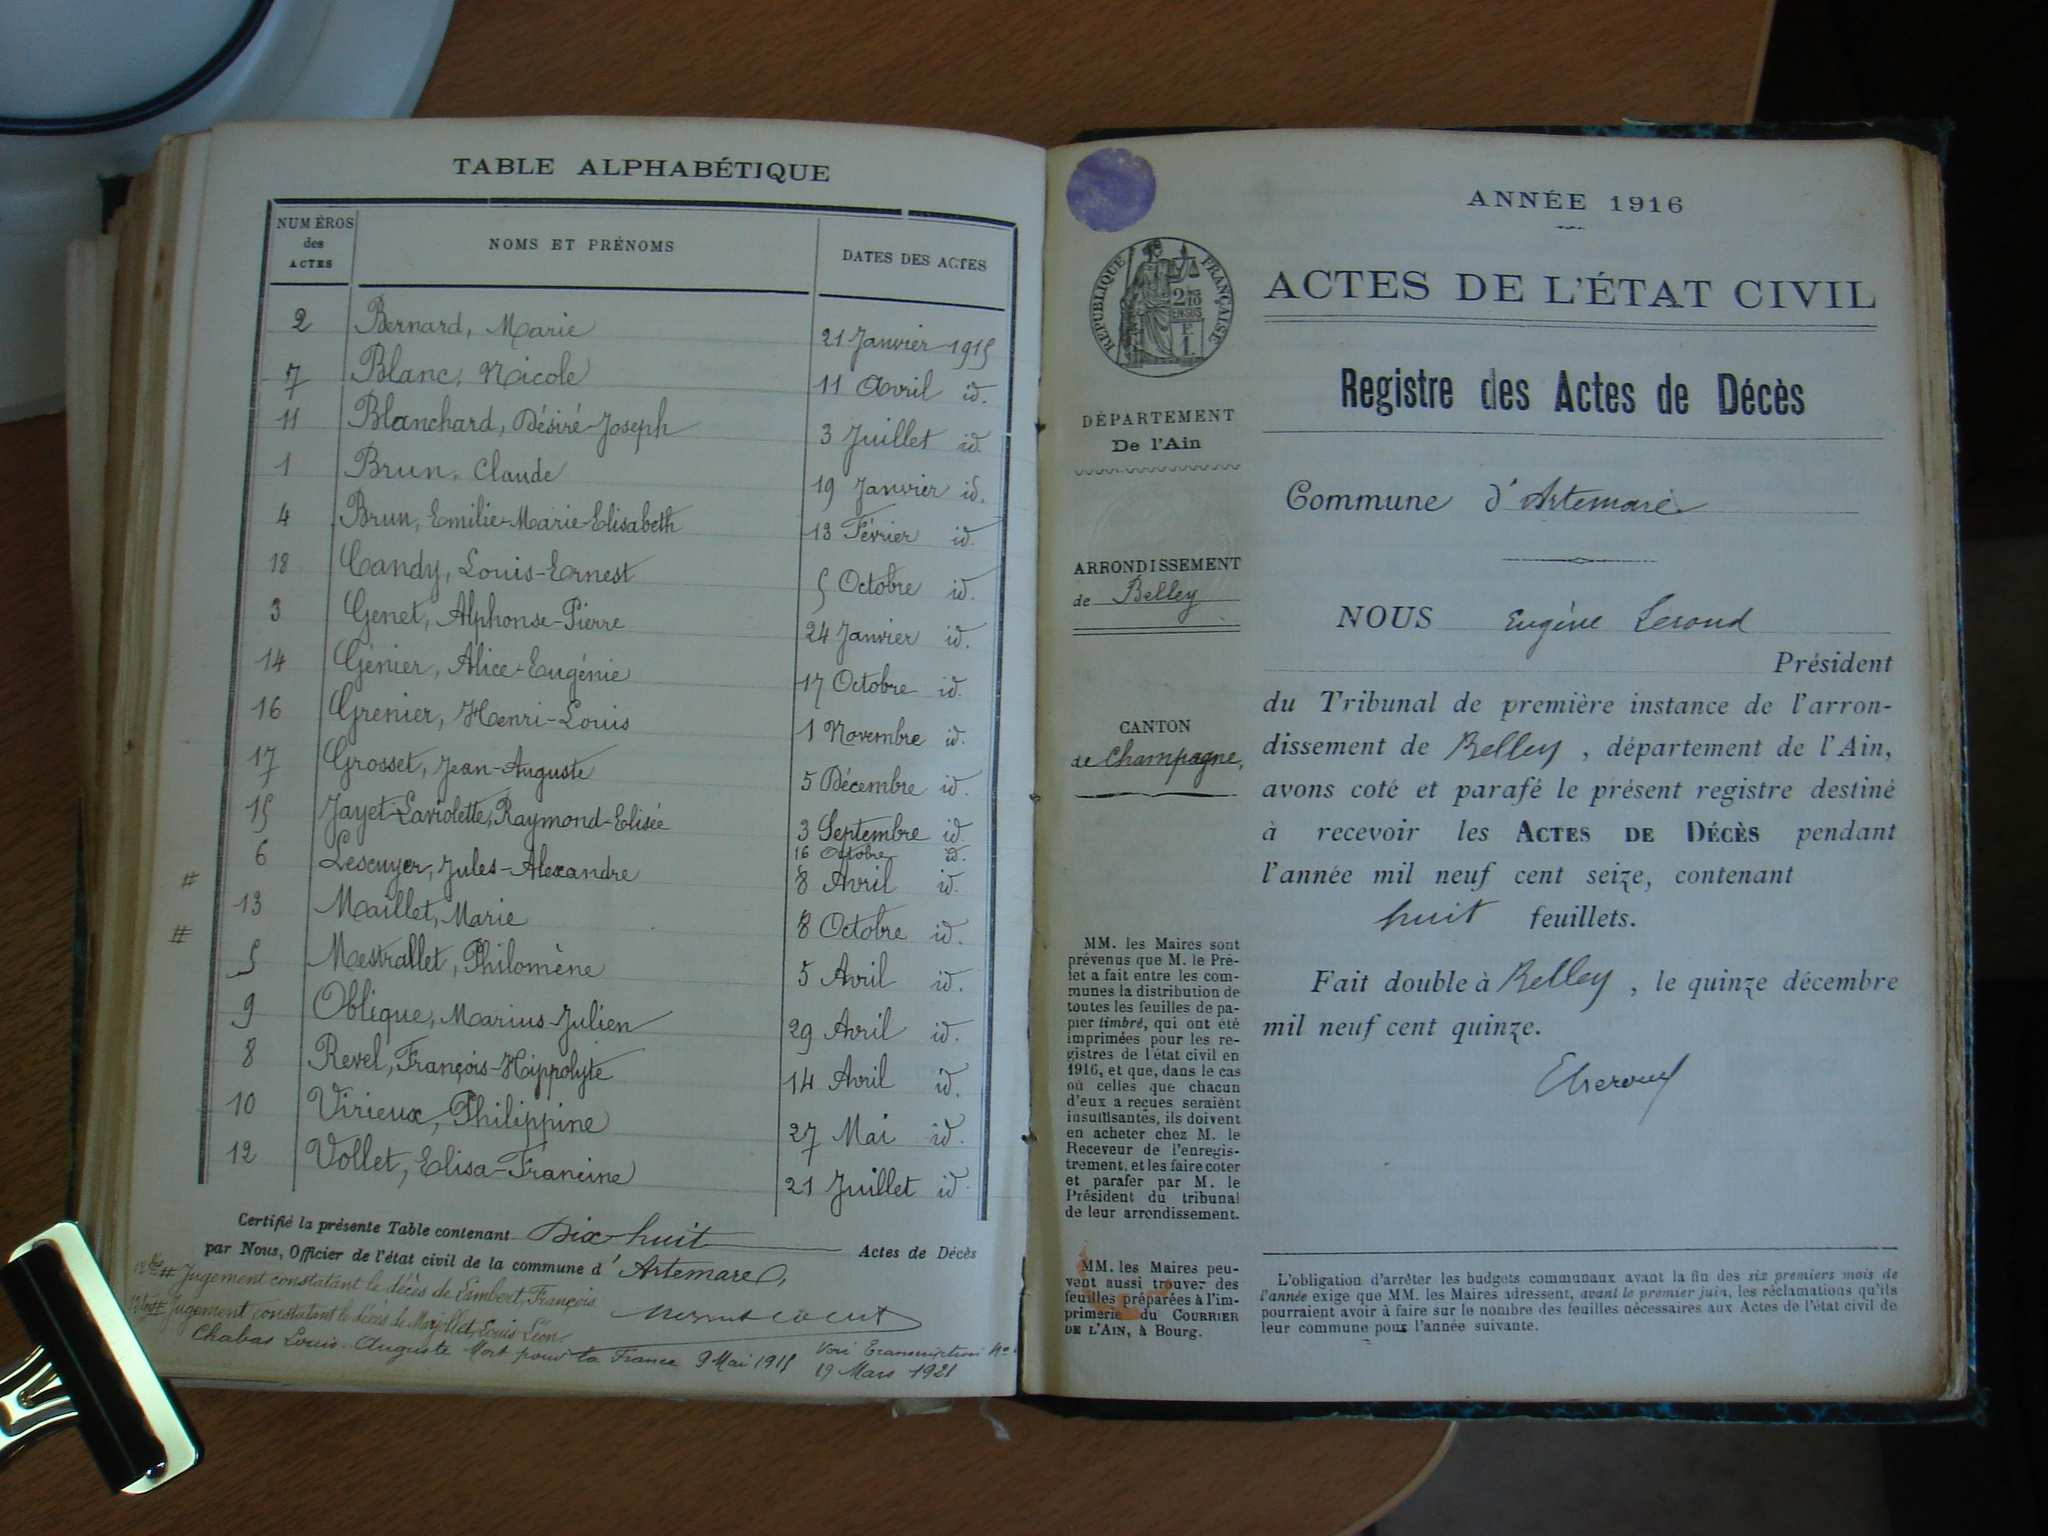 TABLE ALPHABÉTIQUE
NUMÉROS des ACTES NOMS ET PRÉNOMS DATES DES ACTES
2 Bernard, Marie 21 Janvier 1915
7 Blanc, Nicole 11 Avril id.
11 Blanchard, Désiré-Joseph 3 Juillet id.
1 Brun, Claude 19 Janvier id.
4 Brun, Emilie-Marie-Elisabeth 13 Février id.
18 Candy, Louis-Ernest 5 Octobre id.
3 Genet, Alphonse-Pierre 24 Janvier id.
14 Génier, Alice-Eugénie 17 Octobre id.
16 Grenier, Henri-Louis 1 Novembre id.
17 Grosset, Jean-Auguste 5 Décembre id.
15 Jayet-Laviolette, Raymond-Elisée 3 Septembre id.
16 Octobre id.
6 Lescuyer, Jules-Alexandre 8 Avril id.
#
13 Maillet, Marie 8 Octobre id.
#
5 Mestrallet, Philomène 5 Avril id.
9 Oblique, Marius-Julien 29 Avril id.
8 Revel, François-Hippolyte 14 Avril id.
10 Virieux, Philippine 27 Mai id.
12 Vollet, Elisa-Francine 21 Juillet id.
Certifié la présente Table contenant Dix-huit Actes de Décès
par Nous, Officier de l'état civil de la commune d'Artemare,
# Jugement constatant le décès de Lambert, François.
# Jugement constatant le décès de Marjollet, Louis Léon
Chabas Louis-Auguste Mort pour la France 9 Mai 1915 Voir Transcription No
19 Mars 1921
ANNÉE 1916
ACTES DE L'ÉTAT CIVIL
Registre des Actes de Décès
RÉPUBLIQUE FRANÇAISE
F. 1.
DÉPARTEMENT
De l'Ain
ARRONDISSEMENT
de Belley
CANTON
de Champagne,
MM. les Maires sont
prévenus que M. le Pré-
fet a fait entre les com-
munes la distribution de
toutes les feuilles de pa-
pier timbré, qui ont été
imprimées pour les re-
gistres de l'état civil en
1916, et que, dans le cas
où celles que chacun
d'eux a reçues seraient
insuffisantes, ils doivent
en acheter chez M. le
Receveur de l'enregis-
trement, et les faire coter
et parafer par M. le
Président du tribunal
de leur arrondissement.
MM. les Maires peu-
vent aussi trouver des
feuilles préparées à l'im-
primerie du COURRIER
DE L'AIN, à Bourg.
Commune d'Artemare
NOUS Eugène Leroud
Président
du Tribunal de première instance de l'arron-
dissement de Belley, département de l'Ain,
avons coté et parafé le présent registre destiné
à recevoir les ACTES DE DÉCÈS pendant
l'année mil neuf cent seize, contenant
huit feuillets.
Fait double à Belley, le quinze décembre
mil neuf cent quinze.
ELeroud
L'obligation d'arrêter les budgets communaux avant la fin des six premiers mois de
l'année exige que MM. les Maires adressent, avant le premier juin, les réclamations qu'ils
pourraient avoir à faire sur le nombre des feuilles nécessaires aux Actes de l'état civil de
leur commune pour l'année suivante.